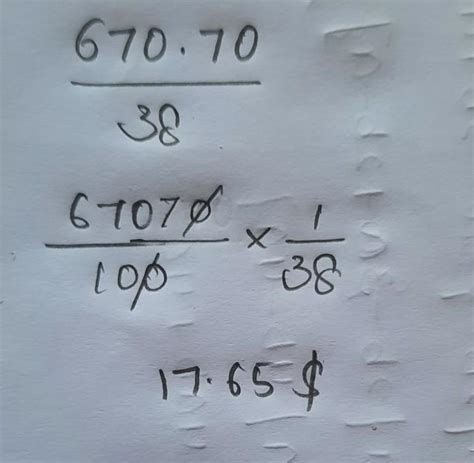 670.70
38
67070/100 × 1/38
17.65 $